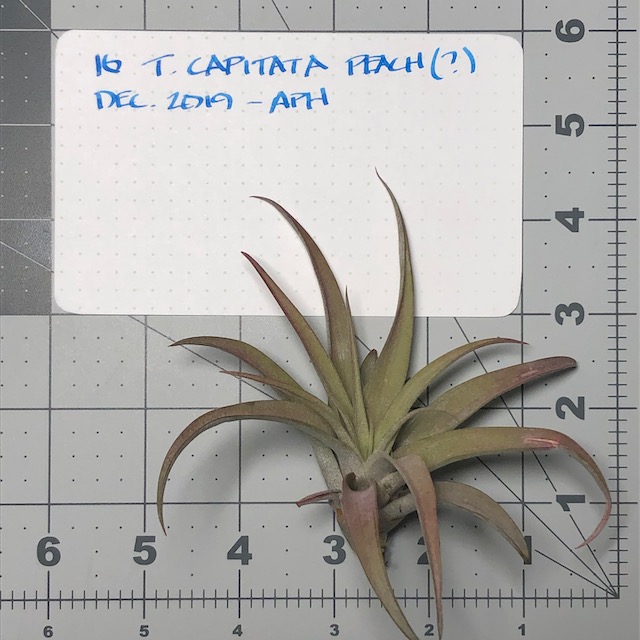 16 T. CAPITATA PEACH (?)
DEC. 2019 - APH
6
5
4
3
2
1
6 5 4 3 2 1
6 5 4 3 2 1